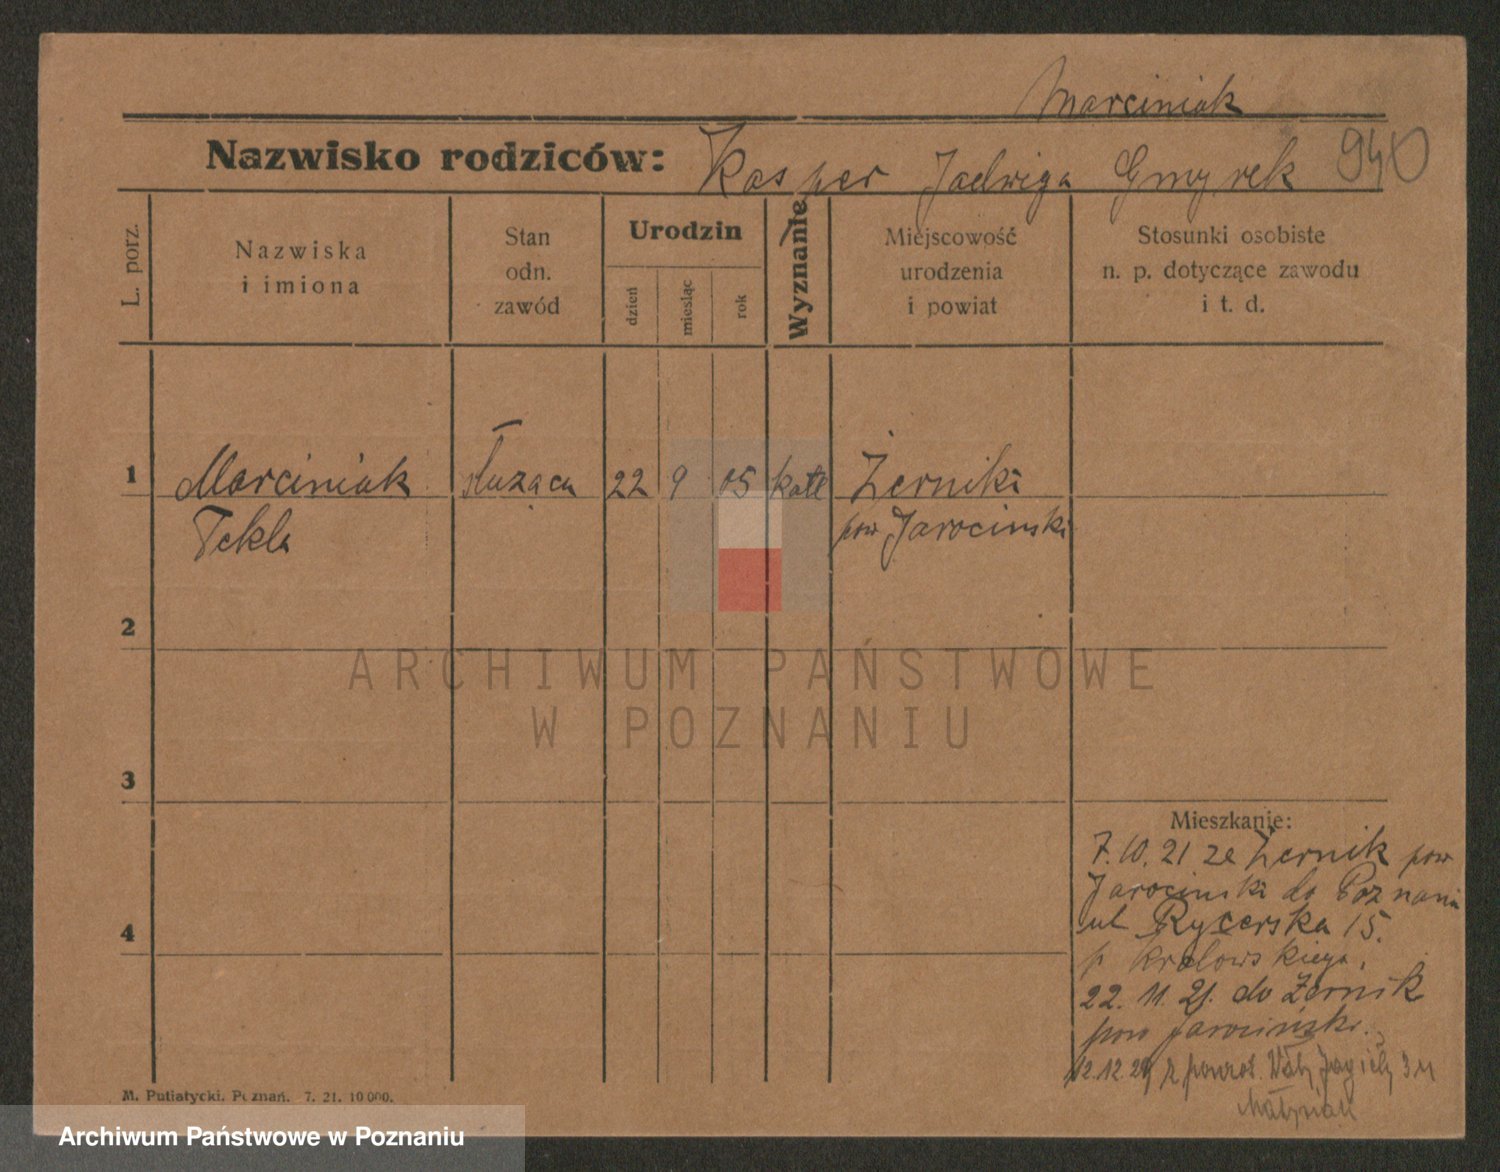 Marciniak
Nazwisko rodziców: Kasper Jadwiga Gmyrek 940
L. porz.
Nazwiska
i imiona
Stan
odn.
zawód
Urodzin
dzień
miesiąc
rok
Wyznanie
Miejscowość
urodzenia
i powiat
Stosunki osobiste
n. p. dotyczące zawodu
i t. d.
1 Marciniak służąca 22 9 05 katl Żerniki
Tekla pow Jarocinski
2
ARCHIWUM PAŃSTWOWE
W POZNANIU
3
Mieszkanie:
7.10.21 ze Żernik pow
Jarocinski do Poznania
4
ul Rycerska 15.
p Krolowskiego.
22. 11. 21. do Żernik
pow Jarociński.
12.12.21 z powrot. 3
M. Putiatycki, Poznań. 7. 21. 10 000.
Archiwum Państwowe w Poznaniu